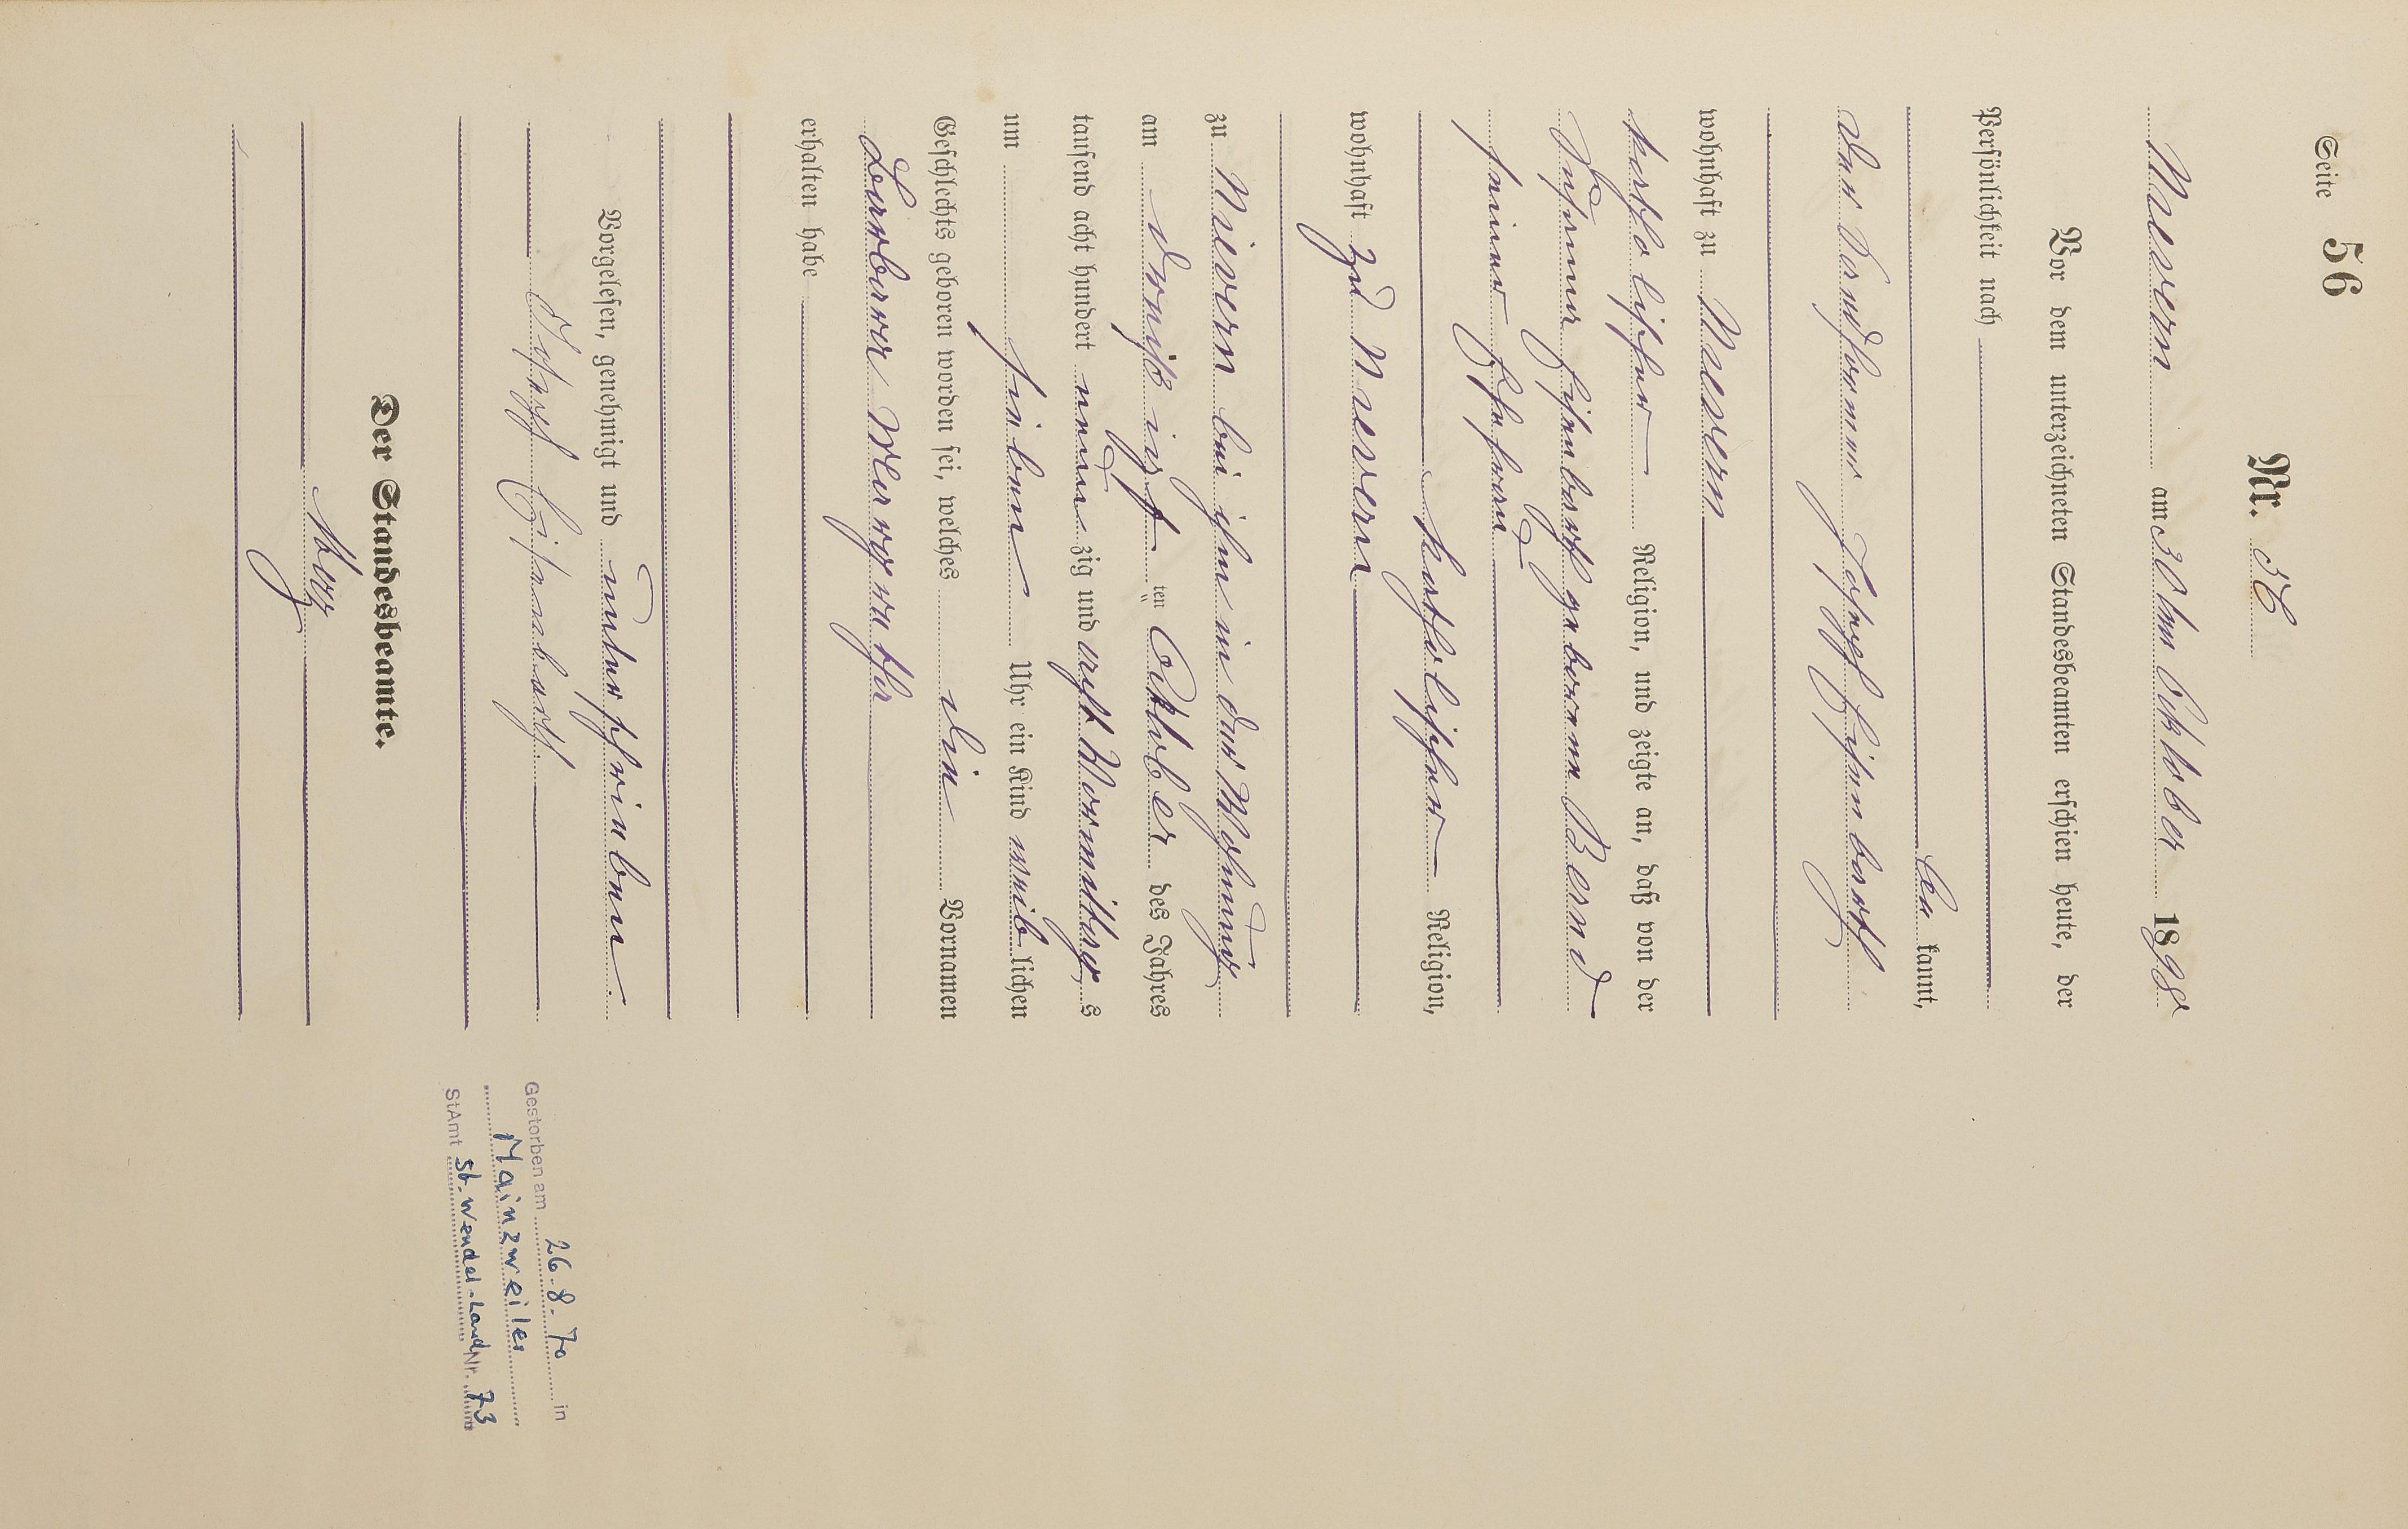 Seite 56
Nr. 56
Nievern am 30ten Oktober 1898
Vor dem unterzeichneten Standesbeamten erschien heute, der
Persönlichkeit nach
be kannt,
der Josef Eisenbarth
wohnhaft zu Nievern
katholischer Religion, und zeigte an, daß von der
Eisenbarth geborene Bernd
seiner Ehefrau
katholischer Religion,
wohnhaft zu Nievern
zu Nievern bei ihm in der Wohnung
am dreißigsten Oktober des Jahres
tausend acht hundert neun zig und acht Vormittags
um sieben Uhr ein Kind weib lichen
Geschlechts geboren worden sei, welches die Vornamen
Barbara Margarethe
erhalten habe
Vorgelesen, genehmigt und unterschrieben.
Josef Eisenbarth
Der Standesbeamte.
Gestorben am 26.8.70 in
Mainzweiler
StAmt St. Wendel-Land Nr. 73